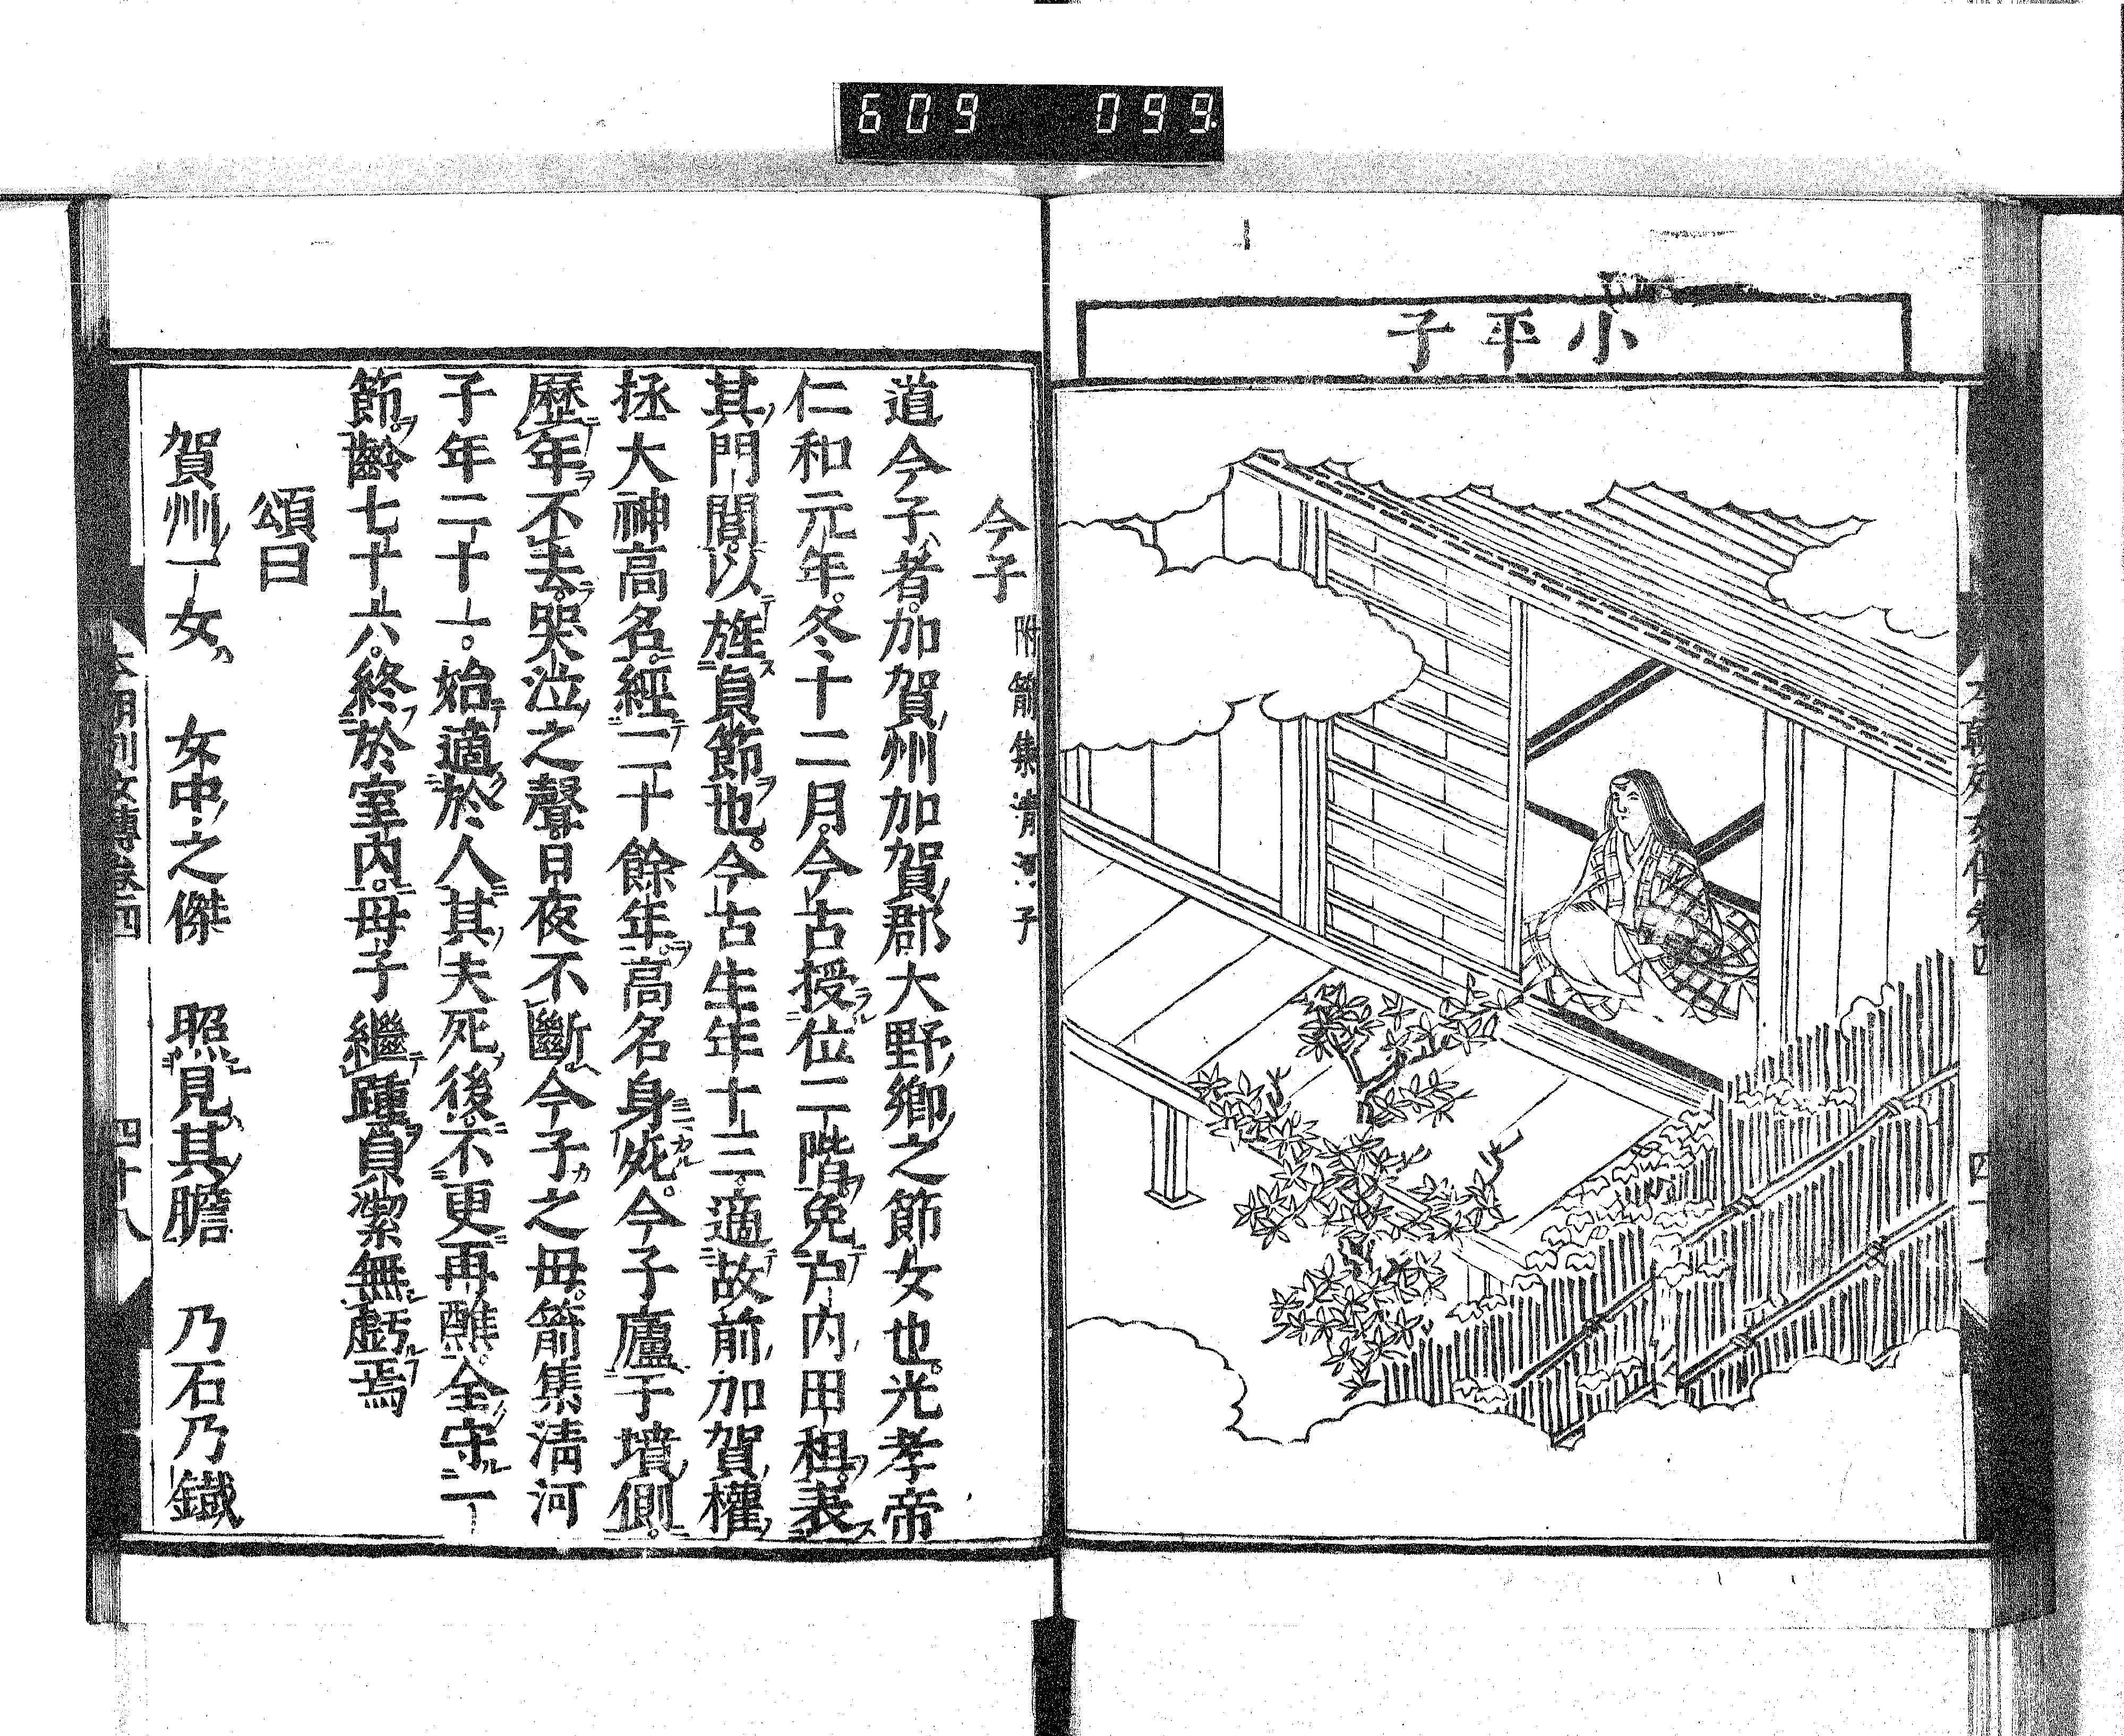 609 099.
小平子
本朝列女傳卷四 四十七
今子 附箭集淸河子
道今子者。加賀州加賀郡大野郷之節女也。光孝帝
仁和元年。冬十二月。今古授位二階。免戸内田租。表
其門閭。以旌貞節也。今古生年十三。適故前加賀權
拯大神高名。經二十餘年。高名身死。今子廬于墳側。
歷年不去。哭泣之聲。日夜不斷。今子之母。箭集淸河
子年二十一。始適於人。其夫死後。不更再醮。全守一
節。齡七十六。終於室内。母子繼踵。貞潔無虧焉
頌曰
賀州一女 女中之傑 照見其膽 乃石乃鐵
本朝列女傳卷四 四十八